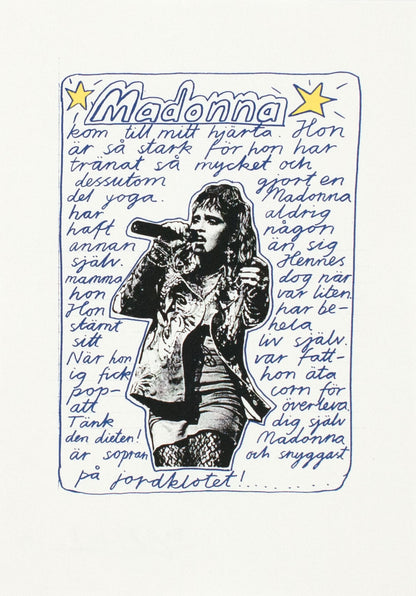 Madonna
kom till mitt hjärta. Hon
är så stark för hon har
tränat så mycket och
dessutom gjort en
del yoga. Madonna
har aldrig
haft någon
annan än sig
själv. Hennes
mamma dog när
hon var liten.
Hon har be-
stämt hela
sitt liv själv.
När hon var fatt-
ig fick hon äta
pop- corn för
att överleva.
Tänk dig själv
den dieten! Madonna
är sopran och snyggast
på jordklotet!..........